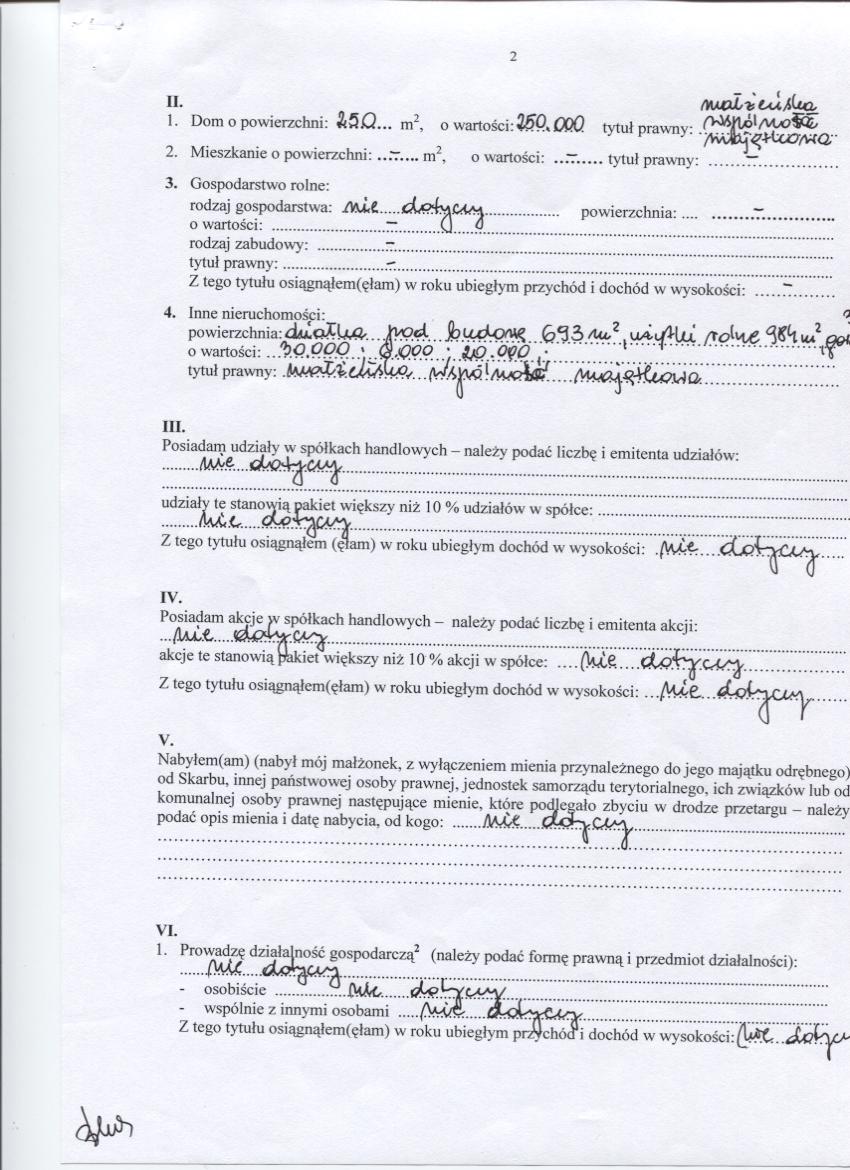 2
II.
małżeńska
1. Dom o powierzchni: 250... m², o wartości: 250.000 tytuł prawny: wspólność
majątkowa
2. Mieszkanie o powierzchni: ..–..... m², o wartości: ...–...... tytuł prawny: ......–..............
3. Gospodarstwo rolne:
rodzaj gospodarstwa: nie dotyczy.................. powierzchnia: .... .......–.............
o wartości: ....................–....................
rodzaj zabudowy: ...............–....................
tytuł prawny: ....................–....................
Z tego tytułu osiągnąłem(ęłam) w roku ubiegłym przychód i dochód w wysokości: ......–.........
4. Inne nieruchomości:
powierzchnia: działka pod budowę 693 m², użytki rolne 984 m²,
o wartości: ...30.000 ; 8.000 ; 20.000 ;
tytuł prawny: małżeńska wspólność majątkowa
III.
Posiadam udziały w spółkach handlowych – należy podać liczbę i emitenta udziałów:
.........nie dotyczy....................
........................................
udziały te stanowią pakiet większy niż 10 % udziałów w spółce: ....................
.........nie dotyczy....................
Z tego tytułu osiągnąłem (ęłam) w roku ubiegłym dochód w wysokości: .nie dotyczy......
IV.
Posiadam akcje w spółkach handlowych – należy podać liczbę i emitenta akcji:
...nie dotyczy....................
akcje te stanowią pakiet większy niż 10 % akcji w spółce: ....nie dotyczy....................
Z tego tytułu osiągnąłem(ęłam) w roku ubiegłym dochód w wysokości: ...nie dotyczy.......
V.
Nabyłem(am) (nabył mój małżonek, z wyłączeniem mienia przynależnego do jego majątku odrębnego)
od Skarbu, innej państwowej osoby prawnej, jednostek samorządu terytorialnego, ich związków lub od
komunalnej osoby prawnej następujące mienie, które podlegało zbyciu w drodze przetargu – należy
podać opis mienia i datę nabycia, od kogo: .......nie dotyczy....................
........................................
........................................
........................................
VI.
1. Prowadzę działalność gospodarczą² (należy podać formę prawną i przedmiot działalności):
.....nie dotyczy....................
- osobiście ...............nie dotyczy....................
- wspólnie z innymi osobami ....nie dotyczy....................
Z tego tytułu osiągnąłem(ęłam) w roku ubiegłym przychód i dochód w wysokości: nie dotyczy